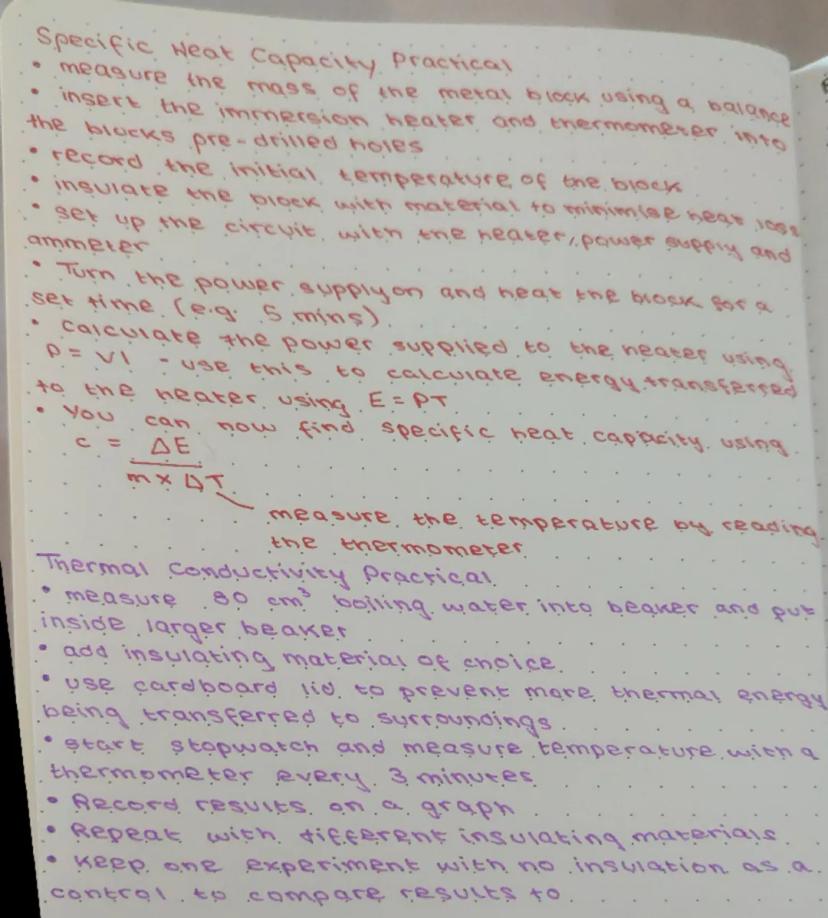 Specific Heat Capacity Practical
• measure the mass of the metal block using a balance
• insert the immersion heater and thermometer into
the blocks pre-drilled holes
• record the initial temperature of the block
• insulate the block with material to minimise heat loss
• set up the circuit with the heater, power supply and
ammeter
• Turn the power supply on and heat the block for a
set time (e.g. 5 mins)
• calculate the power supplied to the heater using
P = VI - use this to calculate energy transferred
to the heater using E = PT
• You can now find specific heat capacity using
c = ΔE
m × ΔT
measure the temperature by reading
the thermometer
Thermal Conductivity Practical
• measure 80 cm³ boiling water into beaker and put
inside larger beaker
• add insulating material of choice
• use cardboard lid to prevent more thermal energy
being transferred to surroundings
• start stopwatch and measure temperature with a
thermometer every 3 minutes
• Record results on a graph
• Repeat with different insulating materials
• Keep one experiment with no insulation as a
control to compare results to